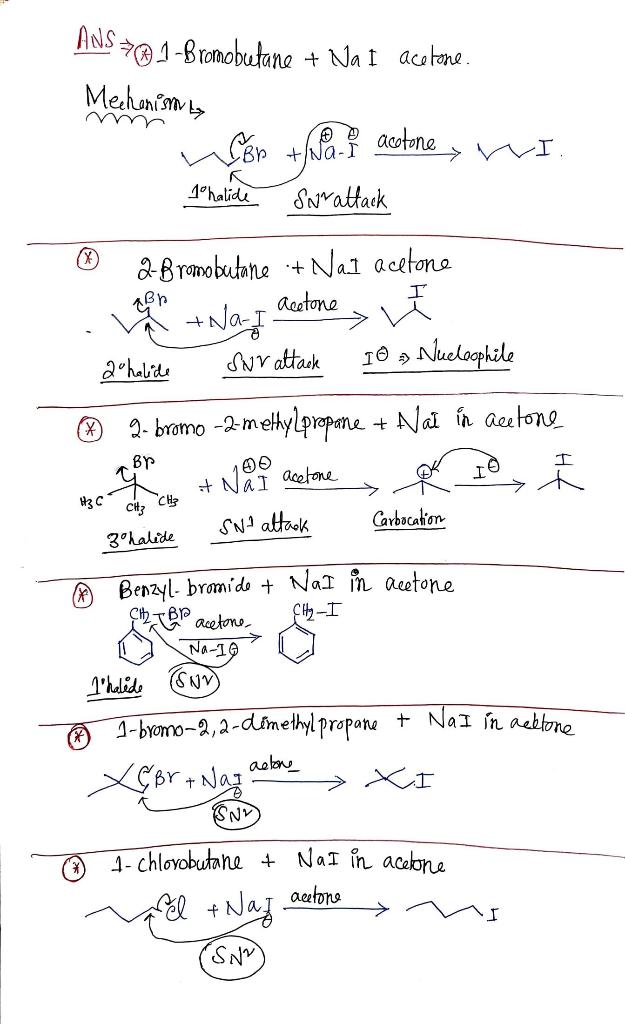 ANS ⇒ * 1-Bromobutane + NaI acetone.
Mechanism ↳
Br + Na-I acetone → I.
⊕ ⊖
1° halide SN² attack
* 2-Bromobutane + NaI acetone
Br + Na-I acetone → I
⊖
2° halide SN² attack I⊖ ⇒ Nucleophile
* 2-bromo-2-methylpropane + NaI in acetone
Br
⊕⊖
H3C CH3 CH3 + NaI acetone → ⊕ I⊖ → I
3° halide SN¹ attack Carbocation
* Benzyl-bromide + NaI in acetone
CH2-Br acetone → CH2-I
Na-I⊖
1° halide SN²
* 1-bromo-2,2-dimethylpropane + NaI in acetone
Br + NaI acetone → I
⊖
SN²
* 1-chlorobutane + NaI in acetone
Cl + NaI acetone → I
⊖
SN²